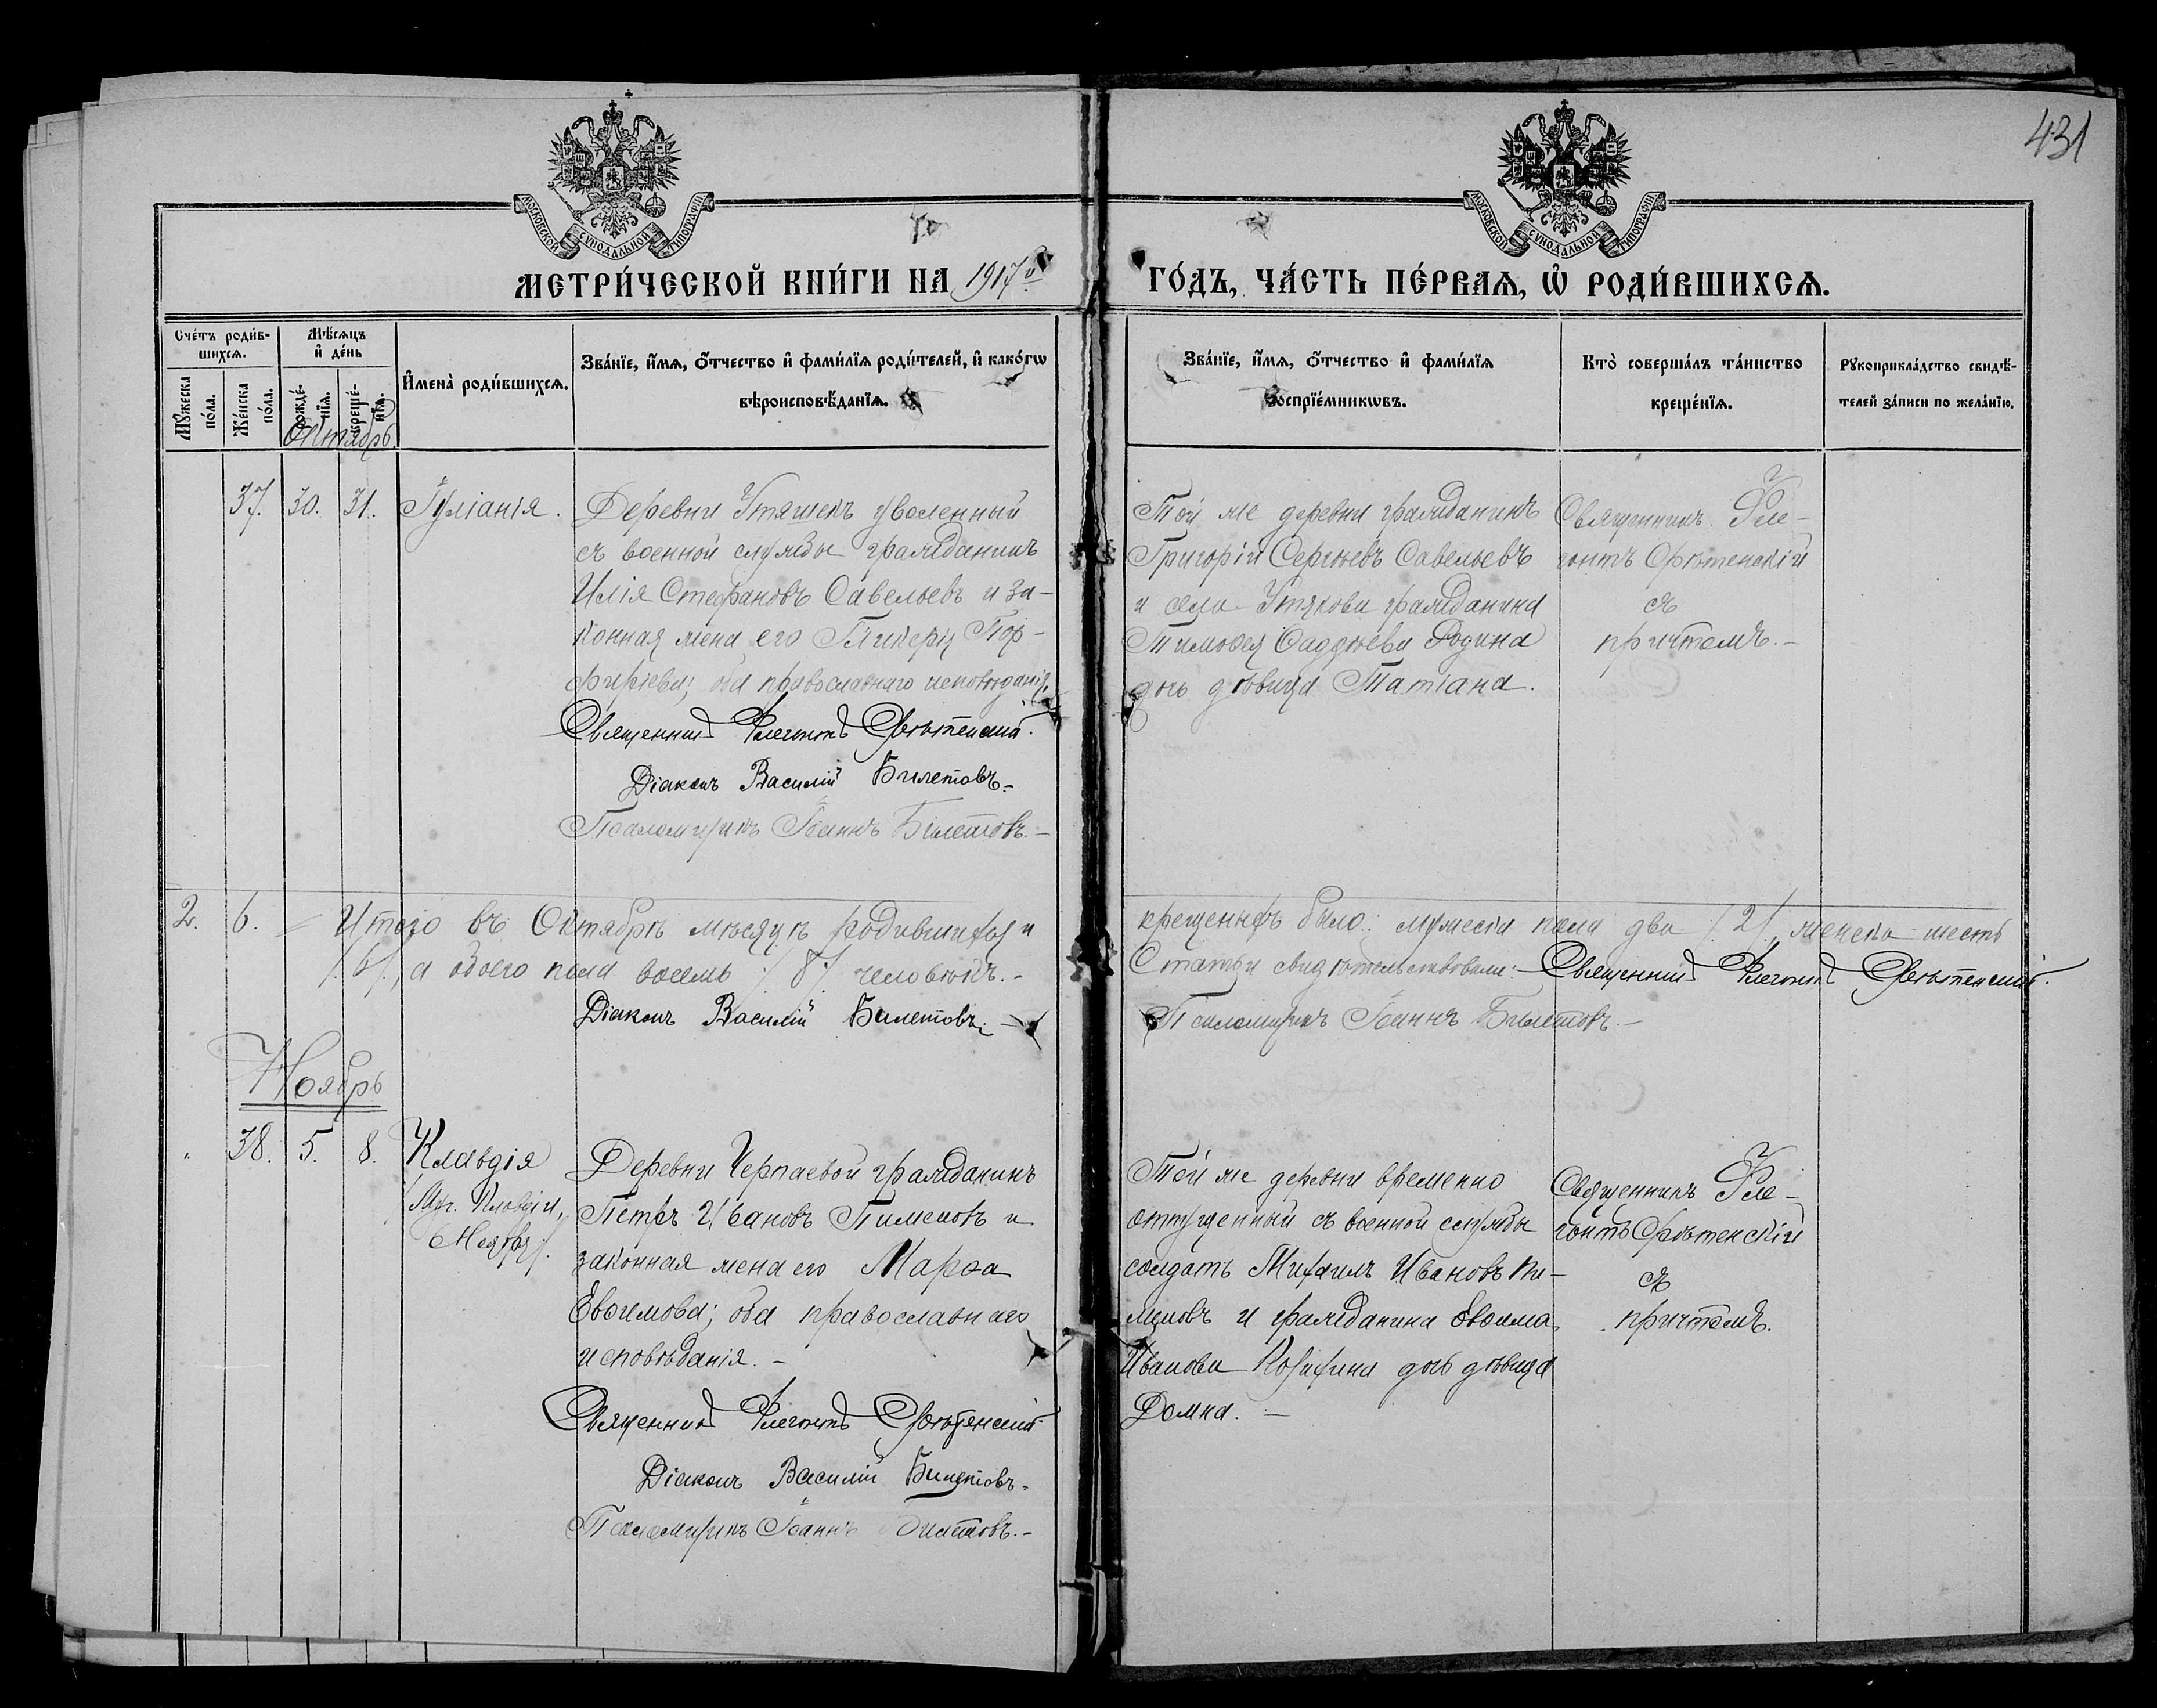 431
МОСКОВСКОЙ СѴНОДАЛЬНОЙ ТИПОГРАФІИ
МОСКОВСКОЙ СѴНОДАЛЬНОЙ ТИПОГРАФІИ
МЕТРИ́ЧЕСКОЙ КНИ́ГИ НА 1917й ГО́ДЪ, ЧА́СТЬ ПЕ́РВАѦ, Ѽ РОДИ́ВШИХСѦ.
Сче́тъ роди́в-
шихсѧ.
Мꙋжеска по́ла.
Же́нска по́ла.
Мѣ́сѧцъ
и҆ де́нь
рожде́-
нїѧ.
креще́-
нїѧ.
И҆мена̀ роди́вшихсѧ.
Зва́нїе, и҆́мѧ, ѻ҆́тчество и҆ фами́лїѧ роди́телей, и҆ како́гѡ
вѣроисповѣ́данїѧ.
Зва́нїе, и҆́мѧ, ѻ҆́тчество и҆ фами́лїѧ
воспрїе́мникѡвъ.
Кто̀ соверша́лъ та́инство
креще́нїѧ.
Рꙋкоприкла́дство свидѣ́-
телей за́писи по жела́нїю.
Октябрь
37. 30. 31. Іуліанія.
Деревни Утяшекъ уволенный
съ военной службы гражданинъ
Илія Стефановъ Савельевъ и за-
конная жена его Гликерія Пор-
фиріева; оба православнаго исповѣданія.
Священникъ Флегонтъ Срѣтенскій.
Діаконъ Василій Билетовъ.-
Псаломщикъ Іоаннъ Билетовъ.-
Той же деревни гражданинъ
Григорій Сергѣевъ Савельевъ
и села Утякова гражданина
Тимоѳея Ѳаддѣева Родина
дочь дѣвица Татіана.
Священникъ Фле-
гонтъ Срѣтенскій
съ
причтомъ.-
2. 6. - Итого въ Октябрѣ мѣсяцѣ родившихся и крещеныхъ было: мужеска пола два /.2/., женска шесть
/.6/., а обоего пола восемь /.8/. человѣкъ.- Статьи свидѣтельствовали:- Священникъ Флегонтъ Срѣтенскій.
Діаконъ Василій Билетовъ.- Псаломщикъ Іоаннъ Билетовъ.-
Ноябрь
38. 5. 8. Клавдія
Деревни Черпаевой гражданинъ
Петръ Ивановъ Пименовъ и
законная жена его Марѳа
Евѳимова; оба православнаго
исповѣданія.-
Священникъ Флегонтъ Срѣтенскій
Діаконъ Василій Билетовъ.
Псаломщикъ Іоаннъ Билетовъ.-
Той же деревни временно
отпущенный съ военной службы
солдатъ Михаилъ Ивановъ Пи-
меновъ и гражданина Евѳима
Иванова дочь дѣвица
Домна.-
Священникъ Фле-
гонтъ Срѣтенскій
съ
причтомъ.